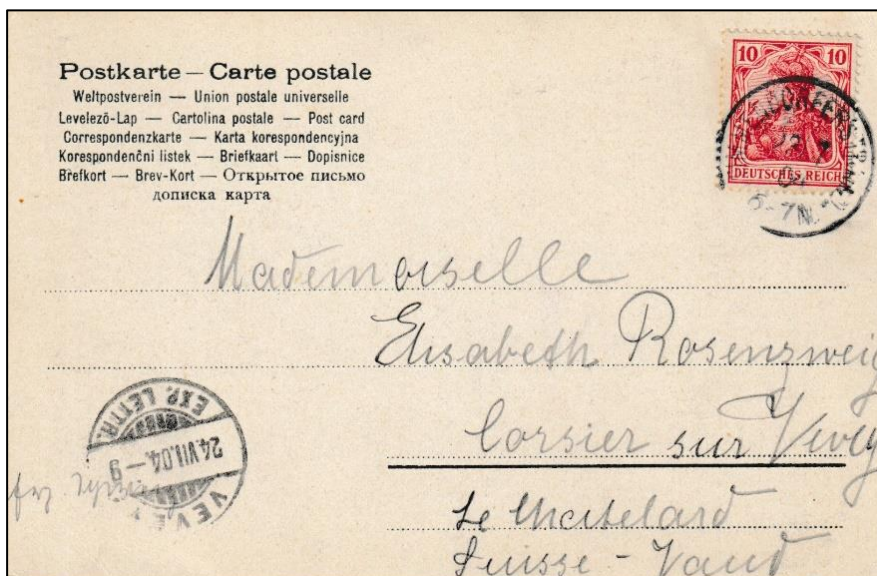 Postkarte — Carte postale
Weltpostverein — Union postale universelle
Levelező-Lap — Cartolina postale — Post card
Correspondenzkarte — Karta korespondencyjna
Korespondenční listek — Briefkaart — Dopisnice
Brefkort — Brev-Kort — Открытое письмо
дописка карта
10 10
DEUTSCHES REICH
Mademoiselle
Elisabeth Rosenzweig
Corsier sur Vevey
le Chatelard
Suisse - Vaud
EXP. LETTR.
24.VII.04.–9
VEVEY